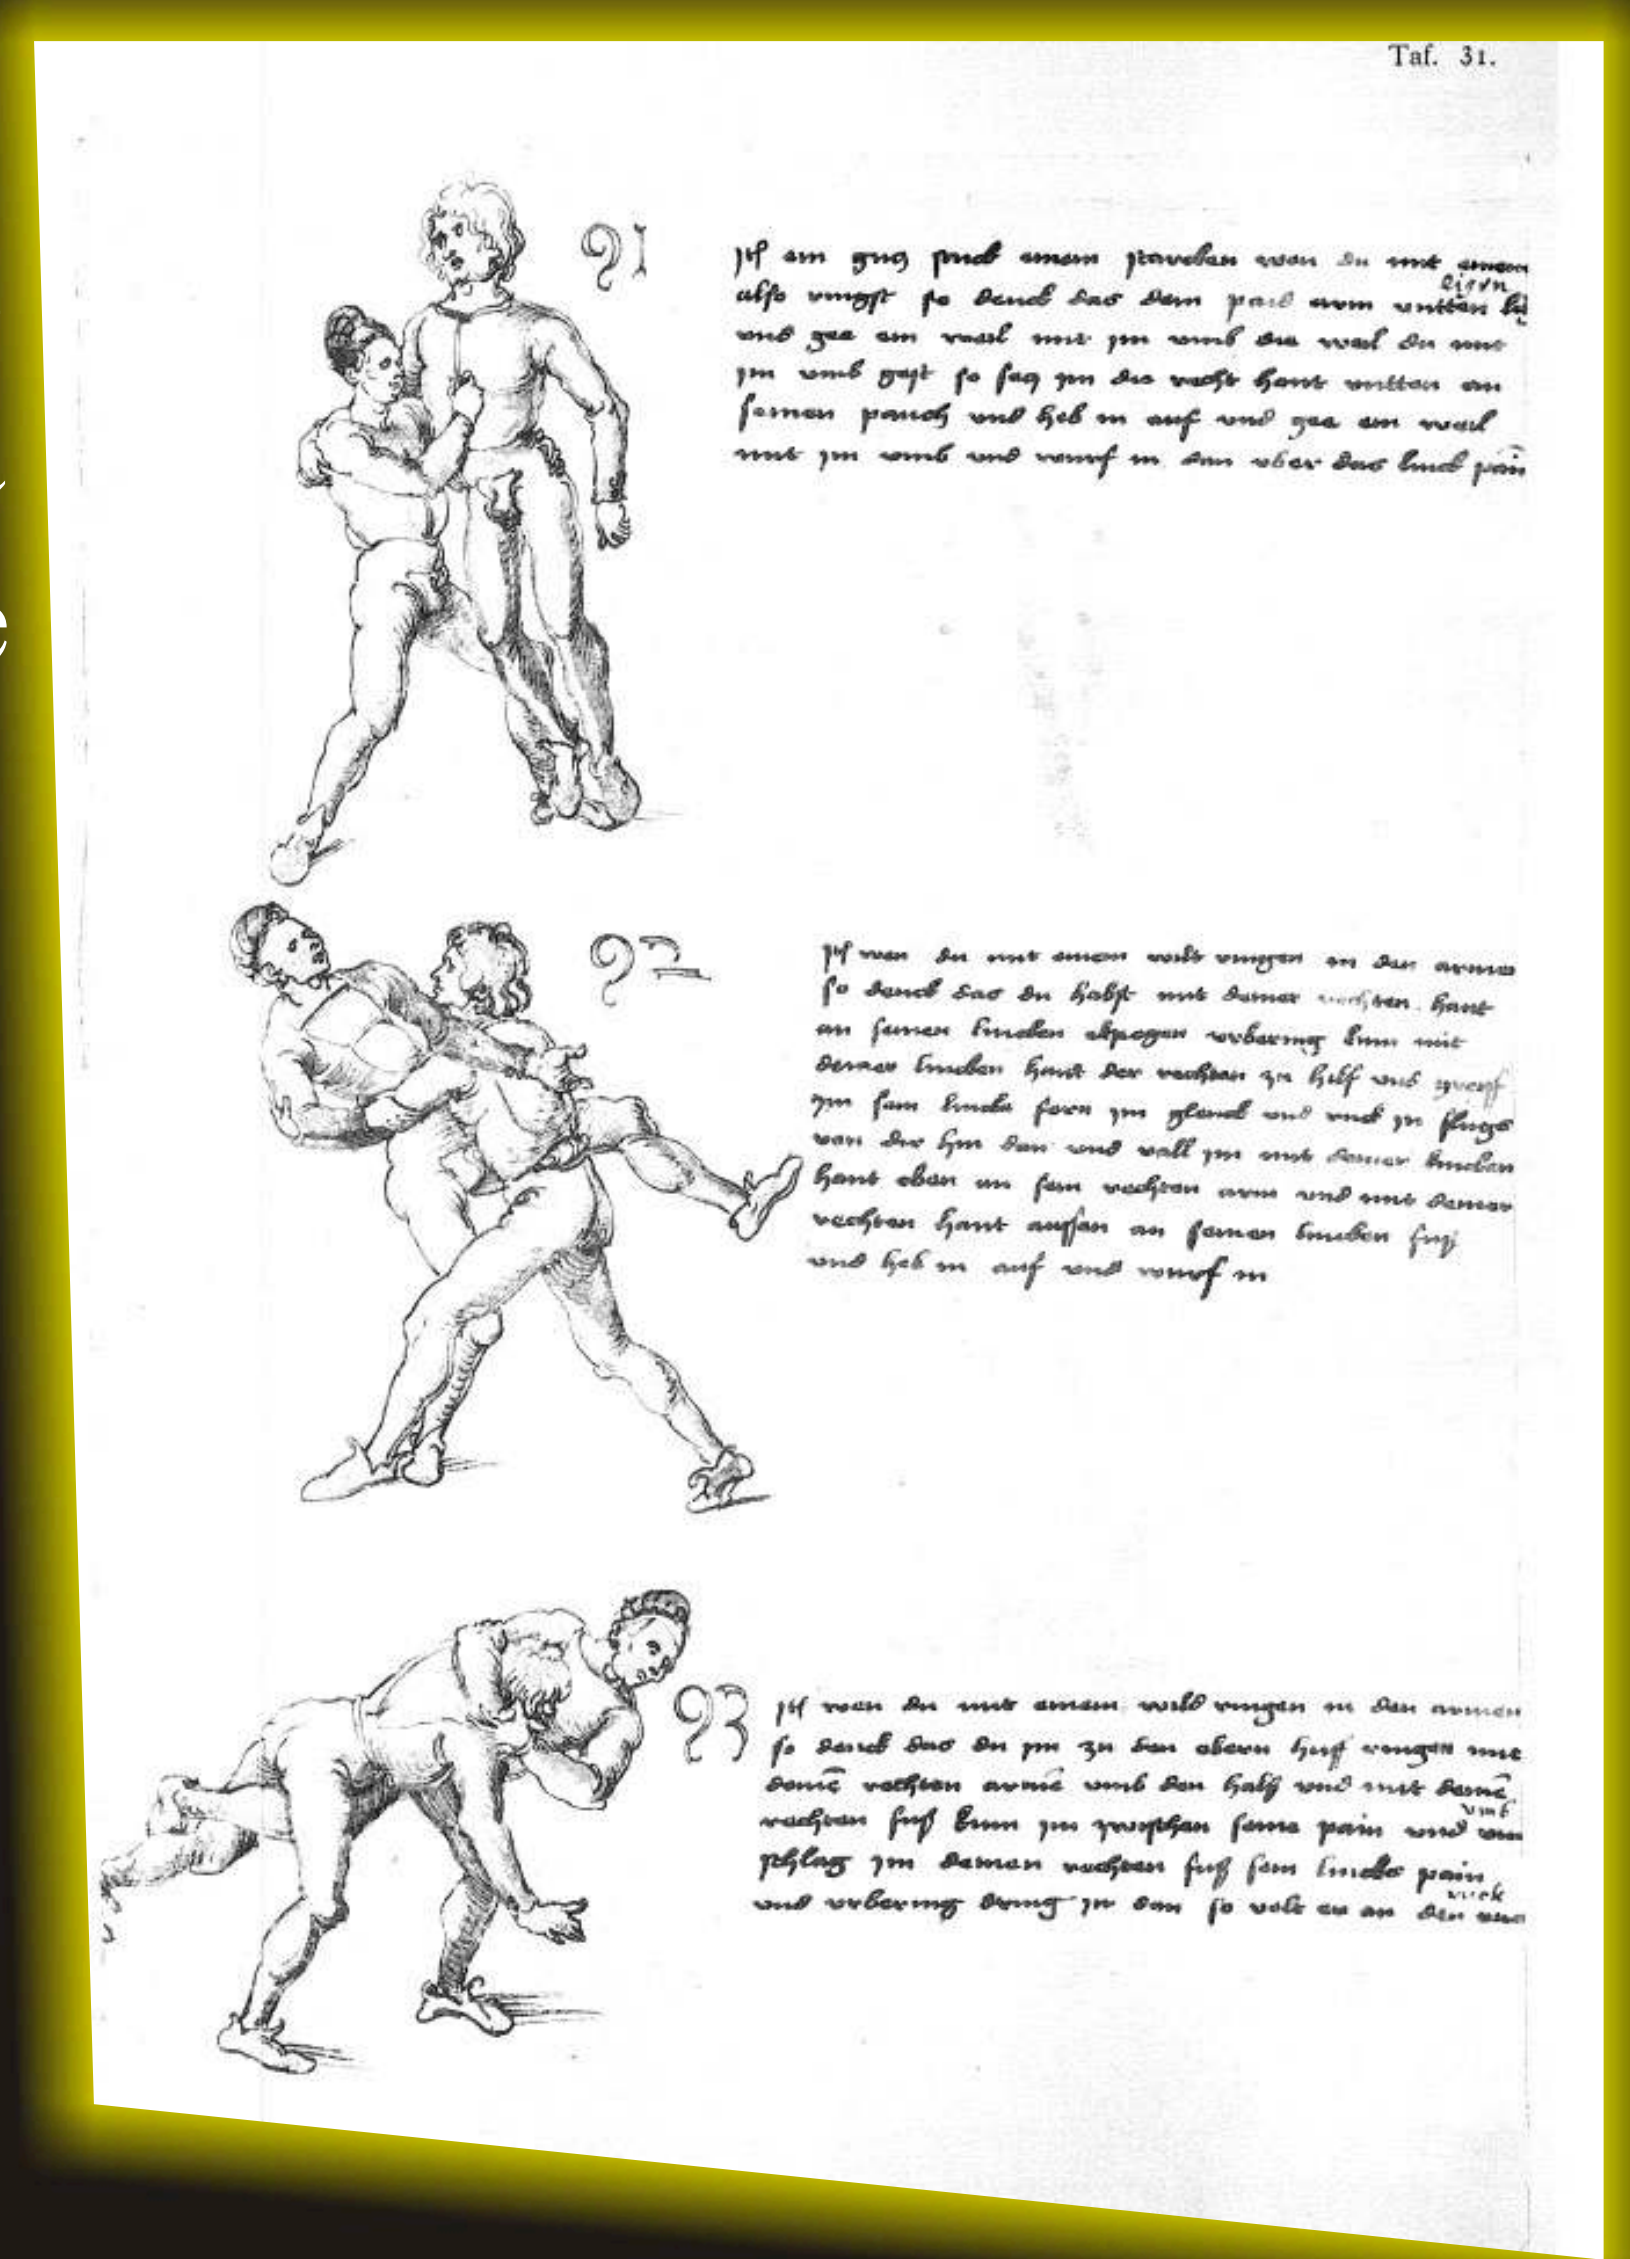 Taf. 31.
91
Itē ein gucz stuck einem starcken wen du mit einem
ligen
also ringst so denck das dein paid arm untten
und gee ein weil mit im umb die weil du mit
im umb gest so secz im die recht hant untten an
seinen pauch und heb in auf und gee ein weil
mit im umb und wurf in dan uber das linck pain
92
Itē wen du mit einem wilt ringen in den armen
so denck das du habst mit deiner rechten hant
an seinen lincken elpogen urbering kum mit
deiner lincken hant der rechten zu hilf und greyff
im sein lincke forn im glenck und ruck in flugs
von dir hin dan und vall im mit deiner lincken
hant oben an sein rechten arm und mit deiner
rechten hant aussen an seinen lincken fuß
und heb in auf und wurf in
93
Itē wen du mit einem wild ringen in den armen
so denck das du im zu den obern huff ringen mit
deinē rechten armē umb den halß und mit deinē
umb
rechten fuß kum im zwischen seine pain und
schlag im deinen rechten fuß sein lincks pain
ruck
und urbering dring in dan so velt er an den